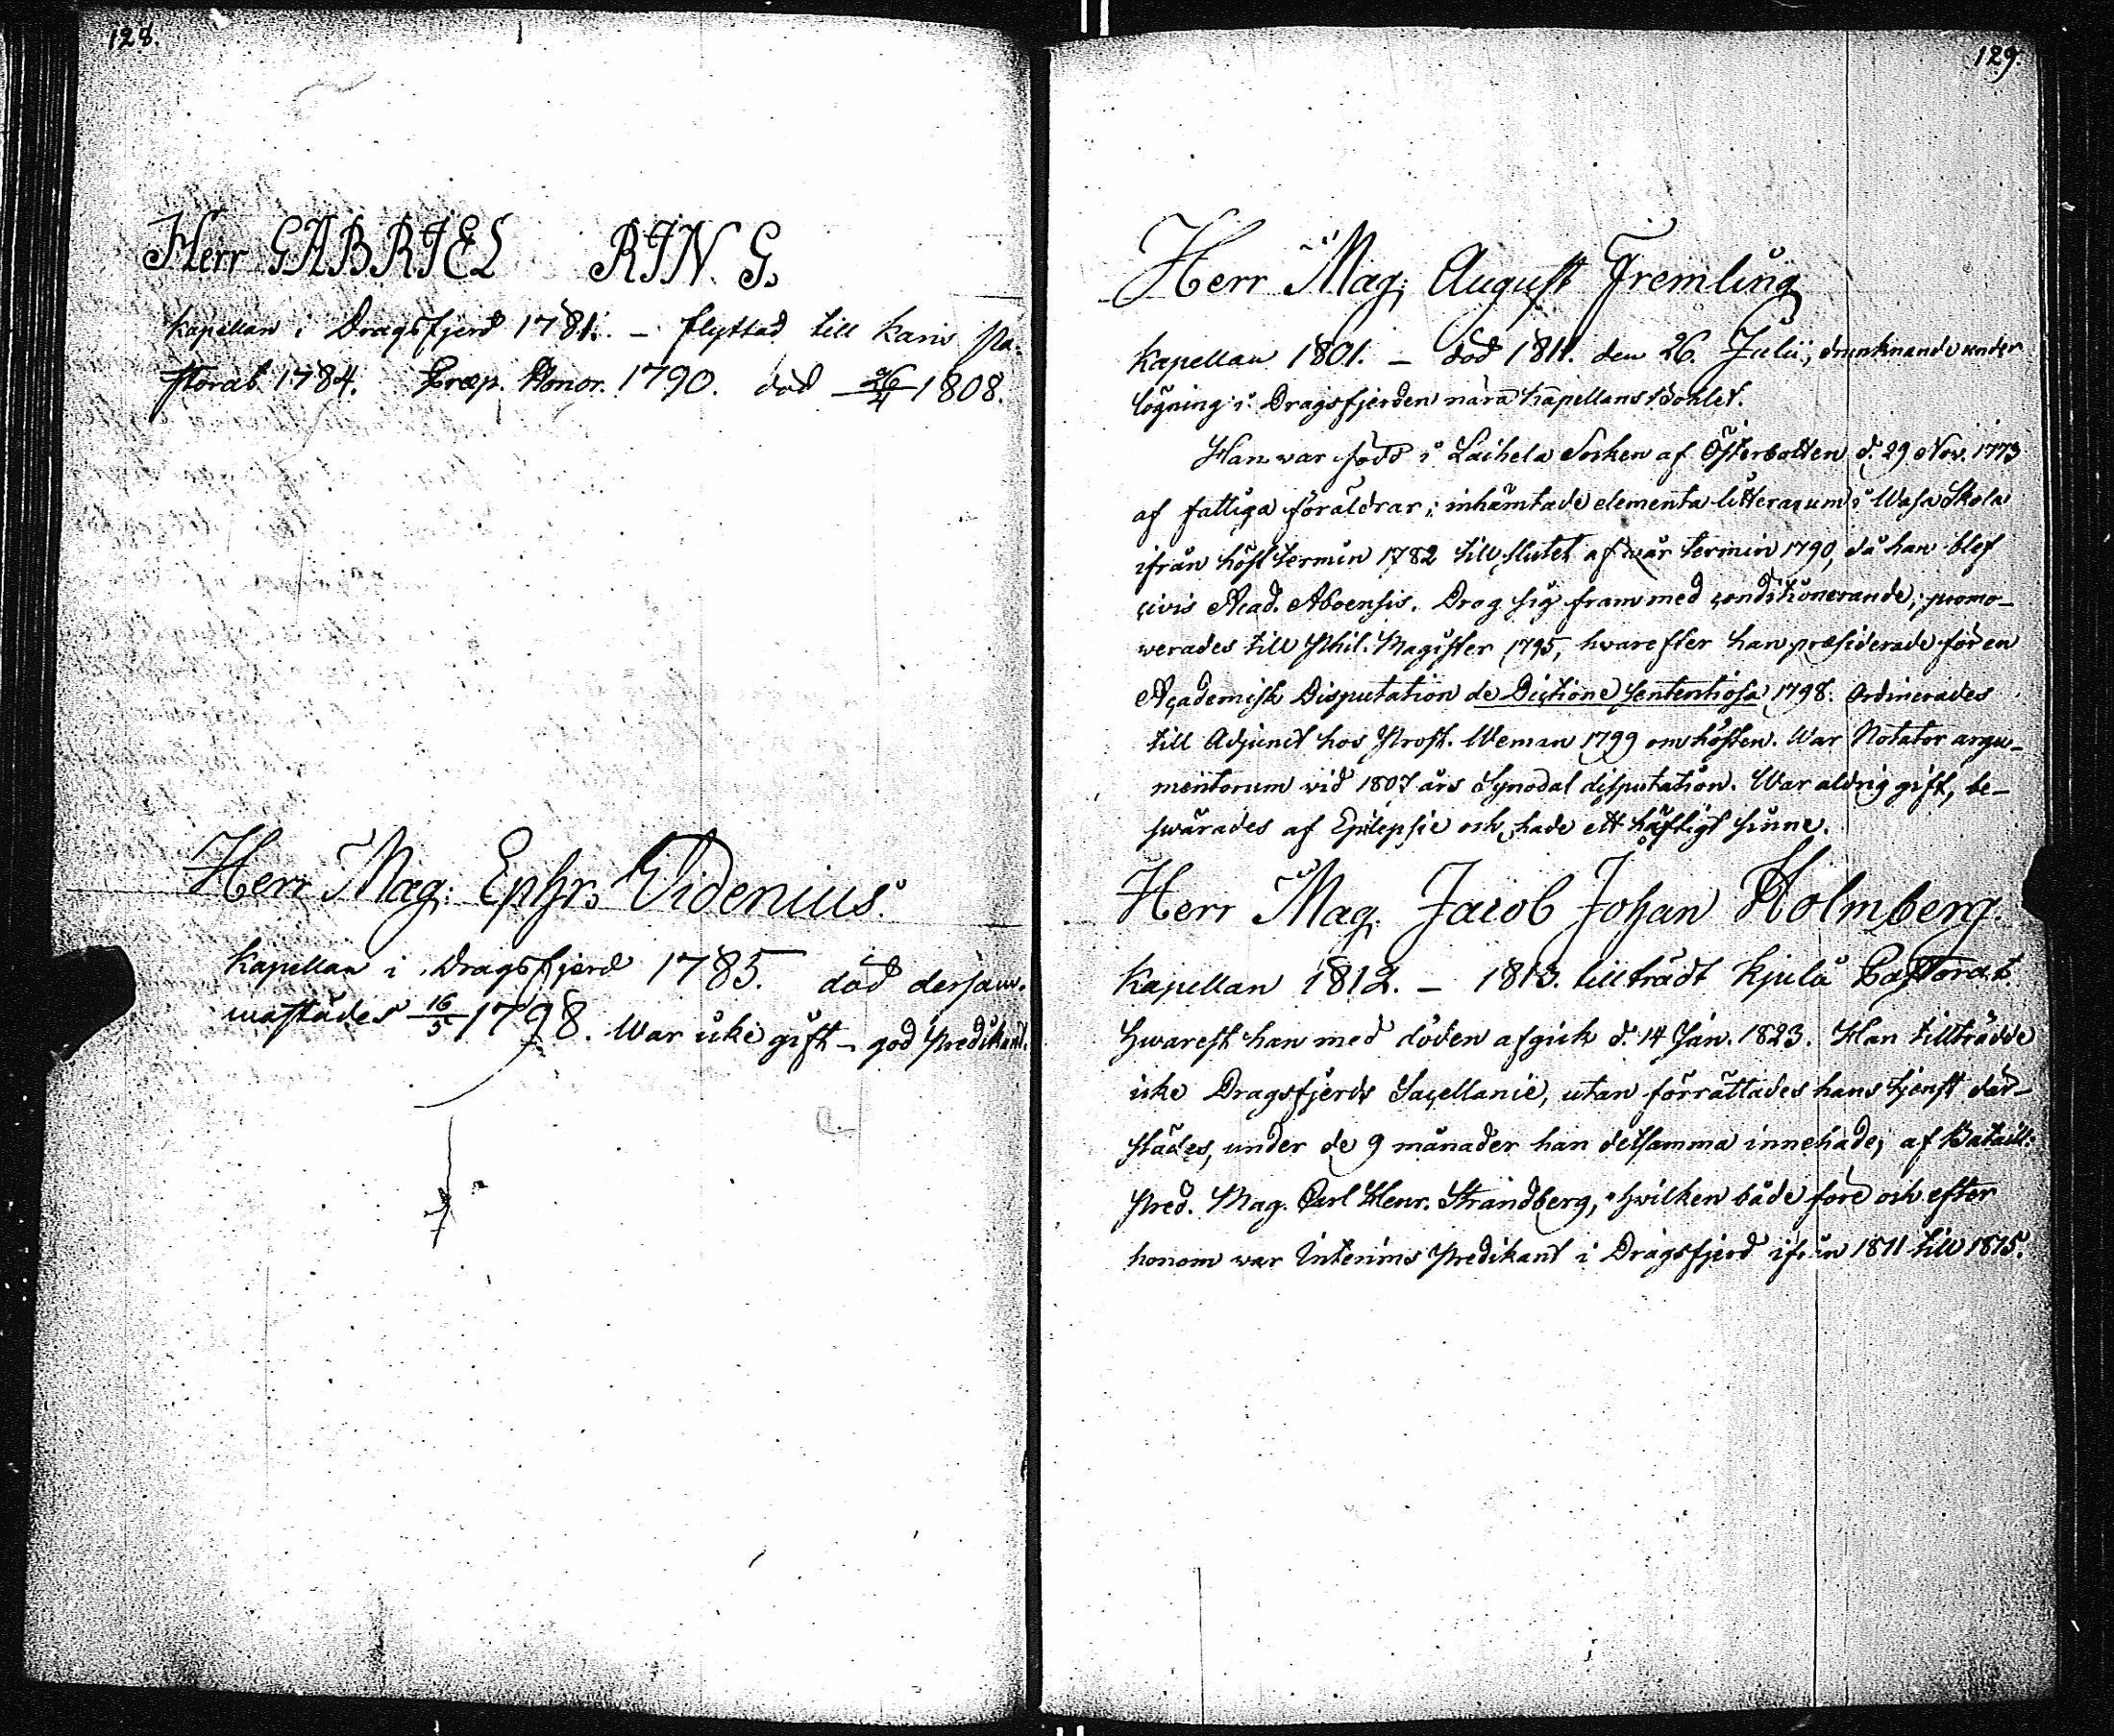 128.
Herr GABRIEL RING.
Kapellan i Dragsfjerd 1781. – flyttad till Karis Pa-
storat. 1784. Præp. Honor. 1790. död 26/4 1808.
Herr Mag: Ephr. Videnius.
Kapellan i Dragsfjerd 1785. död dersam-
mastädes 16/5 1798. War icke gift – god Predikant.
129.
Herr Mag. August Fremling
Kapellan 1801. – död 1811. den 26. Julii, drunknande under
lögning i Dragsfjerden nära Kapellans Bohlet.
Han var född i Laihela Socken af Österbotten d. 29 Nov. 1773
af fattiga föräldrar; inhämtade elementa litterarum i Wasa Skola
ifrån höst termin 1782 till slutet af wår termin 1790, då han blef
civis Acad. Aboensis. Drog sig fram med conditionerande; promo-
verades till Phil. Magister 1795, hvarefter han præsiderade för en
Academisk Disputation de Dictione Sententiosa 1798. Ordinerades
till Adjunct hos Prost. Weman 1799 om hösten. War Notator argu-
mentorum vid 1807 års Synodal disputation. War aldrig gift, be-
swärades af Epilepsie och hade ett häftigt sinne.
Herr Mag. Jacob Johan Holmberg.
Kapellan 1812. – 1813. tillträdt Kjulå Pastorat.
hvarest han med döden afgick d. 14 Jan. 1823. Han tillträdde
icke Dragsfjerds Sacellanie, utan förrättades hans tjenst där-
städes, under de 9 månader han detsamma innehade, af Bataill:
Pred. Mag. Carl Henr. Strandberg, hvilken både före och efter
honom war Interims Predikant i Dragsfjerd ifrån 1811 till 1815.